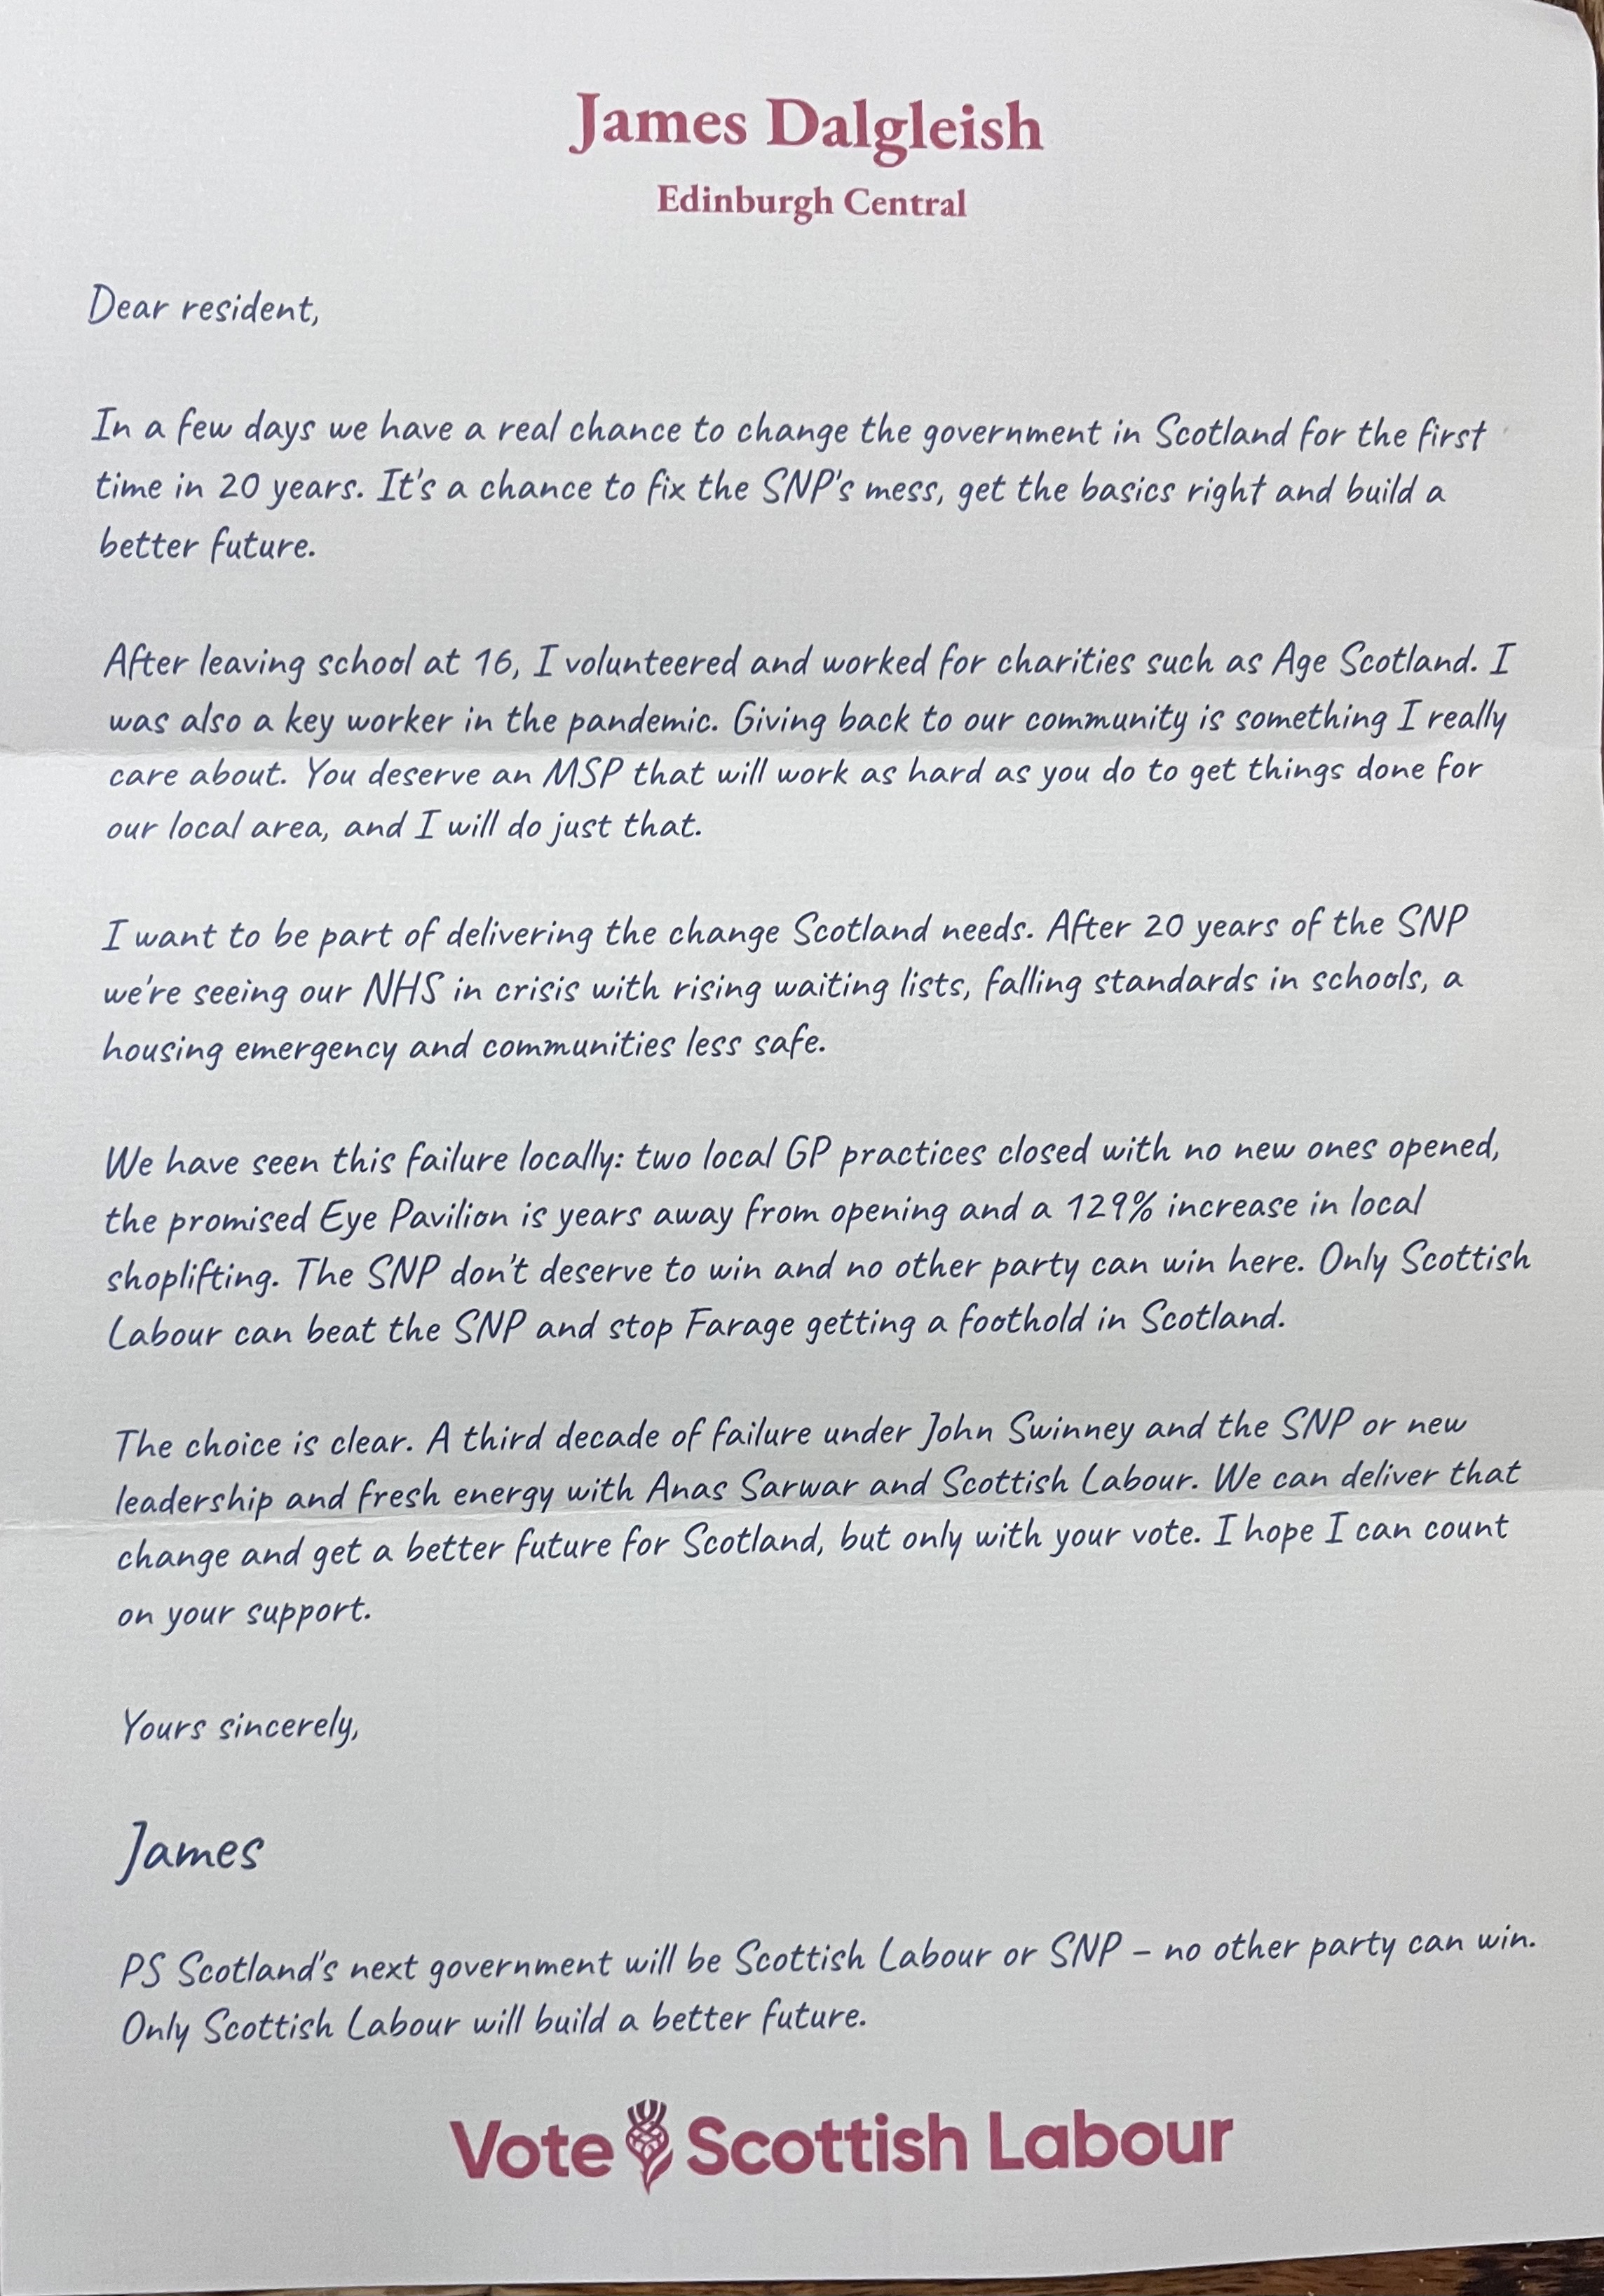 James Dalgleish
Edinburgh Central
Dear resident,
In a few days we have a real chance to change the government in Scotland for the first
time in 20 years. It's a chance to fix the SNP's mess, get the basics right and build a
better future.
After leaving school at 16, I volunteered and worked for charities such as Age Scotland. I
was also a key worker in the pandemic. Giving back to our community is something I really
care about. You deserve an MSP that will work as hard as you do to get things done for
our local area, and I will do just that.
I want to be part of delivering the change Scotland needs. After 20 years of the SNP
we're seeing our NHS in crisis with rising waiting lists, falling standards in schools, a
housing emergency and communities less safe.
We have seen this failure locally: two local GP practices closed with no new ones opened,
the promised Eye Pavilion is years away from opening and a 129% increase in local
shoplifting. The SNP don't deserve to win and no other party can win here. Only Scottish
Labour can beat the SNP and stop Farage getting a foothold in Scotland.
The choice is clear. A third decade of failure under John Swinney and the SNP or new
leadership and fresh energy with Anas Sarwar and Scottish Labour. We can deliver that
change and get a better future for Scotland, but only with your vote. I hope I can count
on your support.
Yours sincerely,
James
PS Scotland's next government will be Scottish Labour or SNP – no other party can win.
Only Scottish Labour will build a better future.
Vote Scottish Labour